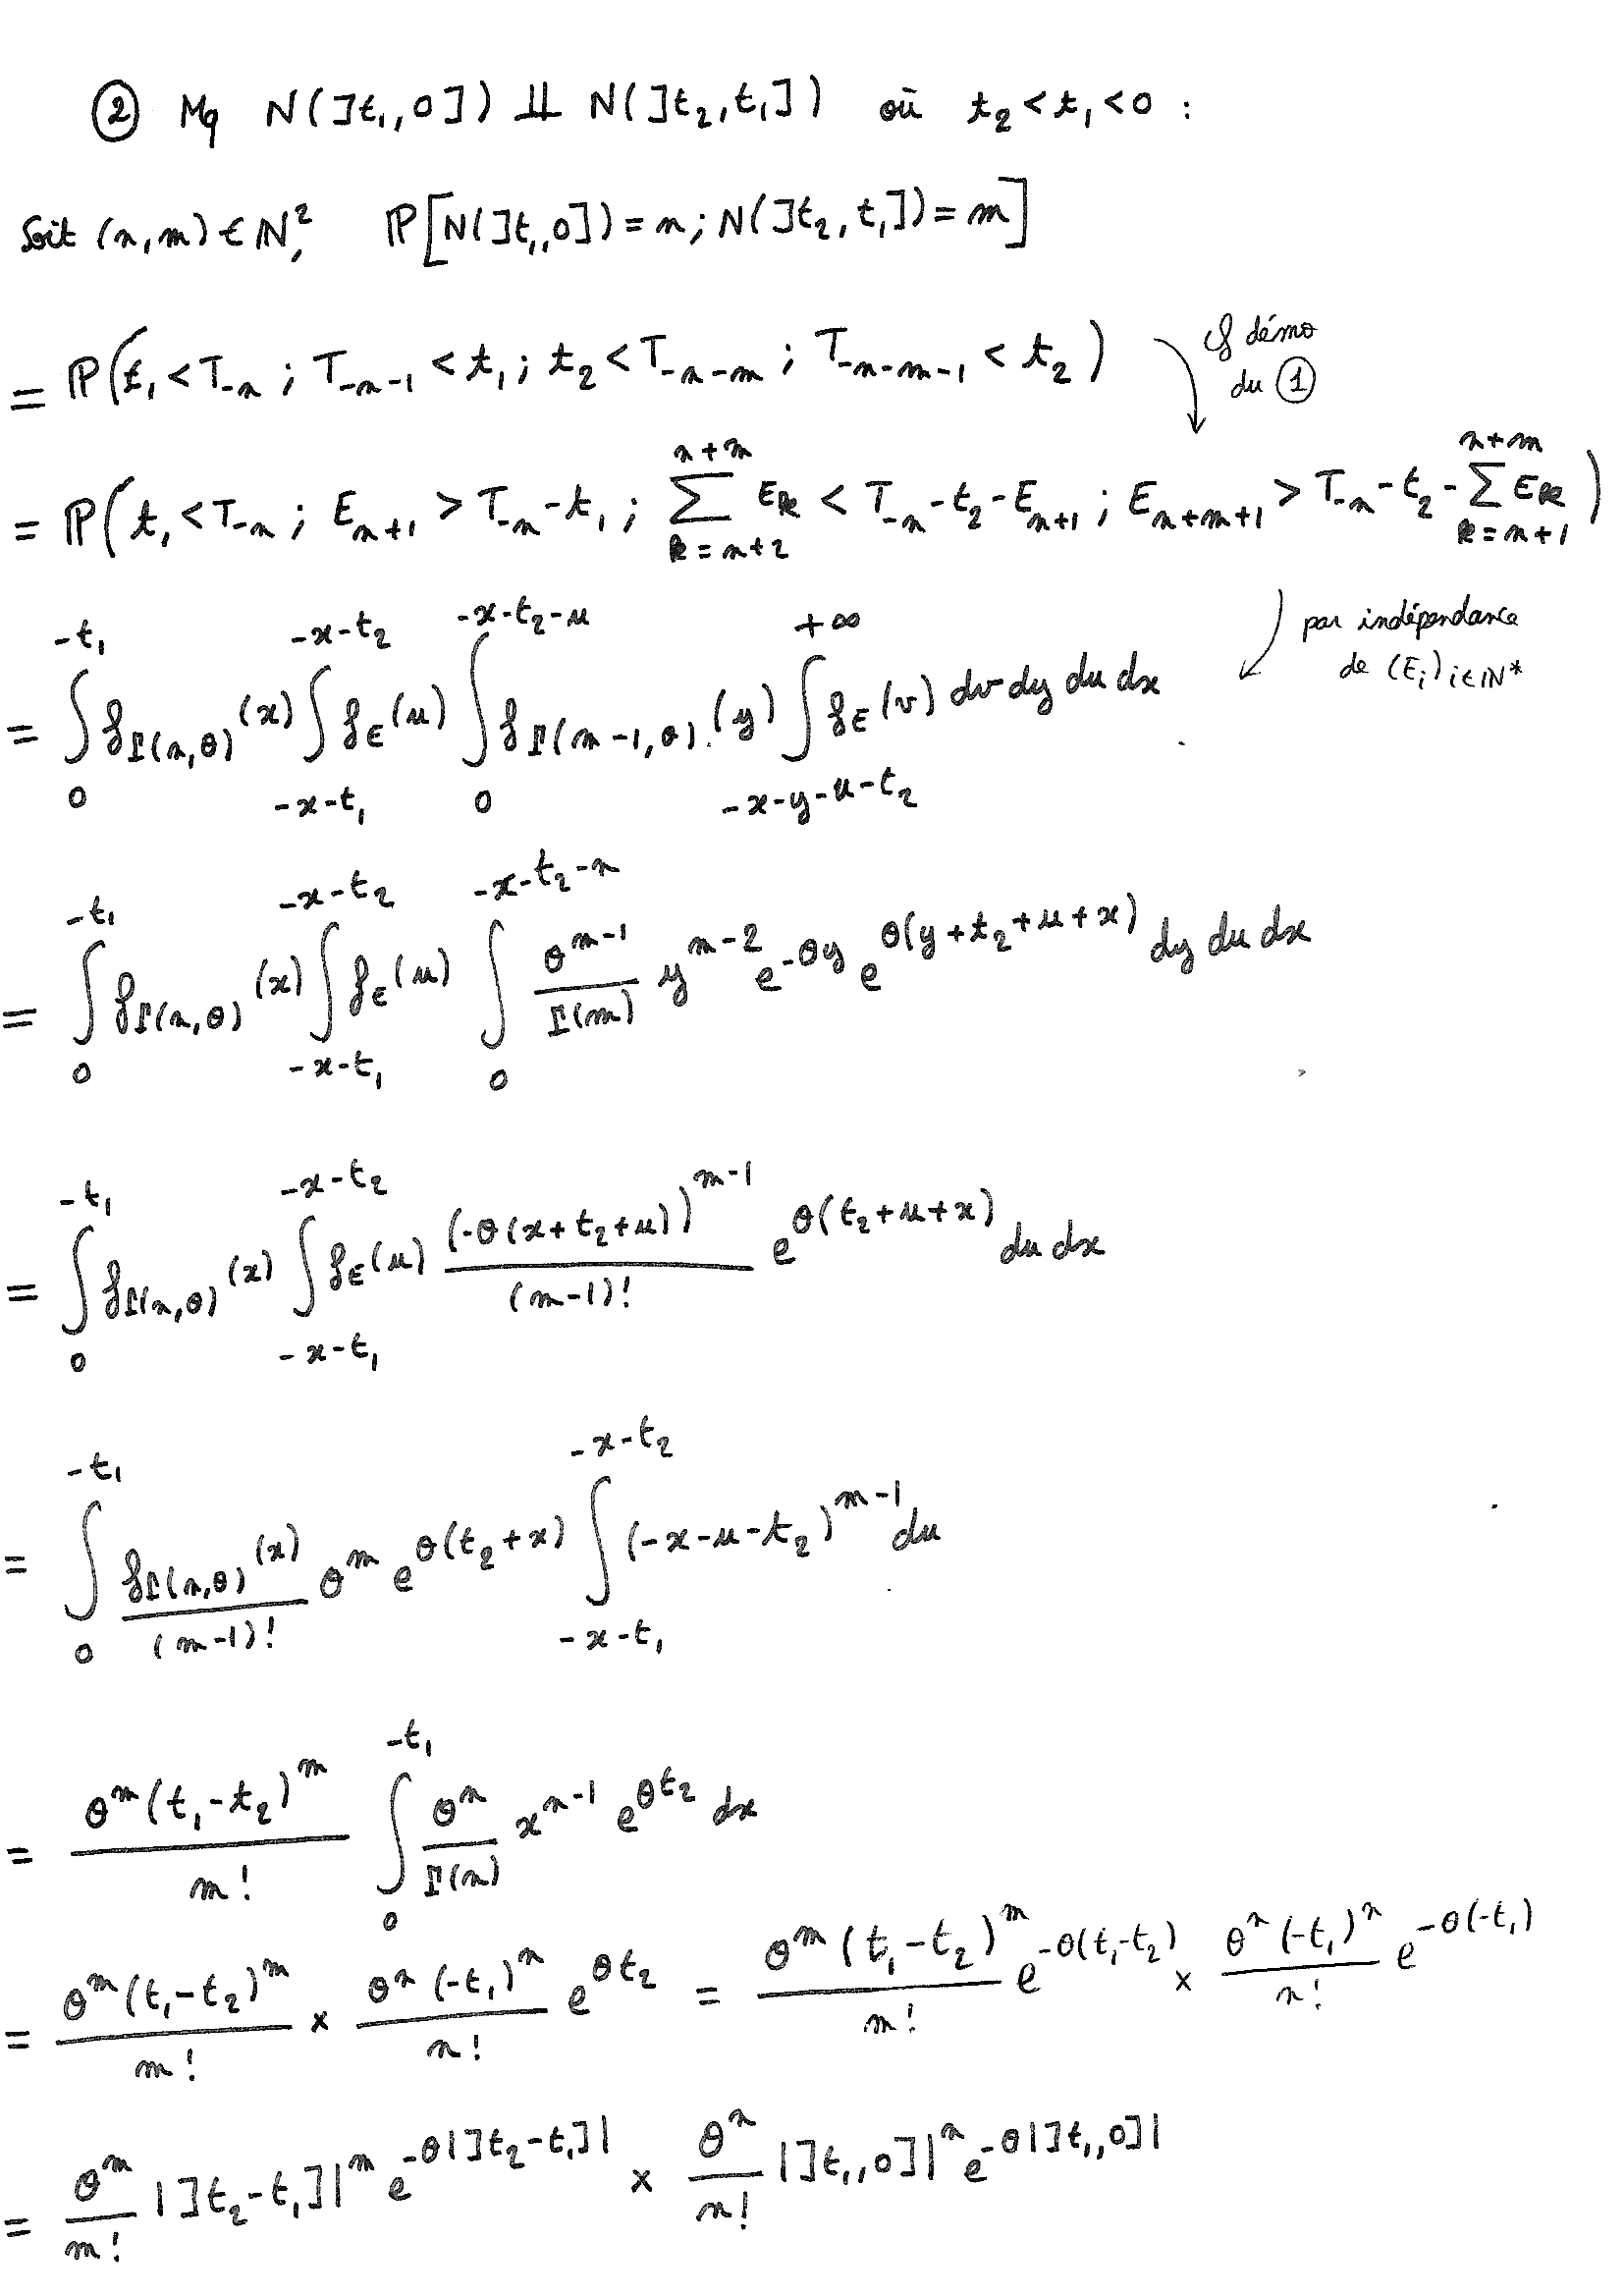 ② Mq N(]t₁,0]) ⫫ N(]t₂,t₁]) où t₂ < t₁ < 0 :
Soit (n,m) ∈ ℕ², ℙ[N(]t₁,0]) = n ; N(]t₂,t₁]) = m]
= ℙ(t₁ < T_{-n} ; T_{-n-1} < t₁ ; t₂ < T_{-n-m} ; T_{-n-m-1} < t₂) cf démo du ①
= ℙ(t₁ < T_{-n} ; E_{n+1} > T_{-n} - t₁ ; \sum_{k=n+2}^{n+m} E_k < T_{-n} - t₂ - E_{n+1} ; E_{n+m+1} > T_{-n} - t₂ - \sum_{k=n+1}^{n+m} E_k)
par indépendance de (E_i)_{i∈ℕ*}
= \int_0^{-t₁} f_{Γ(n,θ)}(x) \int_{-x-t₁}^{-x-t₂} f_E(u) \int_0^{-x-t₂-u} f_{Γ(m-1,θ)}(y) \int_{-x-y-u-t₂}^{+∞} f_E(v) dv dy du dx
= \int_0^{-t₁} f_{Γ(n,θ)}(x) \int_{-x-t₁}^{-x-t₂} f_E(u) \int_0^{-x-t₂-n} \frac{θ^{m-1}}{Γ(m)} y^{m-2} e^{-θy} e^{θ(y+t₂+u+x)} dy du dx
= \int_0^{-t₁} f_{Γ(n,θ)}(x) \int_{-x-t₁}^{-x-t₂} f_E(u) \frac{(-θ(x+t₂+u))^{m-1}}{(m-1)!} e^{θ(t₂+u+x)} du dx
= \int_0^{-t₁} \frac{f_{Γ(n,θ)}(x)}{(m-1)!} θ^m e^{θ(t₂+x)} \int_{-x-t₁}^{-x-t₂} (-x-u-t₂)^{m-1} du
= \frac{θ^m(t₁-t₂)^m}{m!} \int_0^{-t₁} \frac{θ^n}{Γ(n)} x^{n-1} e^{θt₂} dx
= \frac{θ^m(t₁-t₂)^m}{m!} × \frac{θ^n(-t₁)^n}{n!} e^{θt₂} = \frac{θ^m(t₁-t₂)^m}{m!} e^{-θ(t₁-t₂)} × \frac{θ^n(-t₁)^n}{n!} e^{-θ(-t₁)}
= \frac{θ^m}{m!} |]t₂-t₁]|^m e^{-θ|]t₂-t₁]|} × \frac{θ^n}{n!} |]t₁,0]|^n e^{-θ|]t₁,0]|}